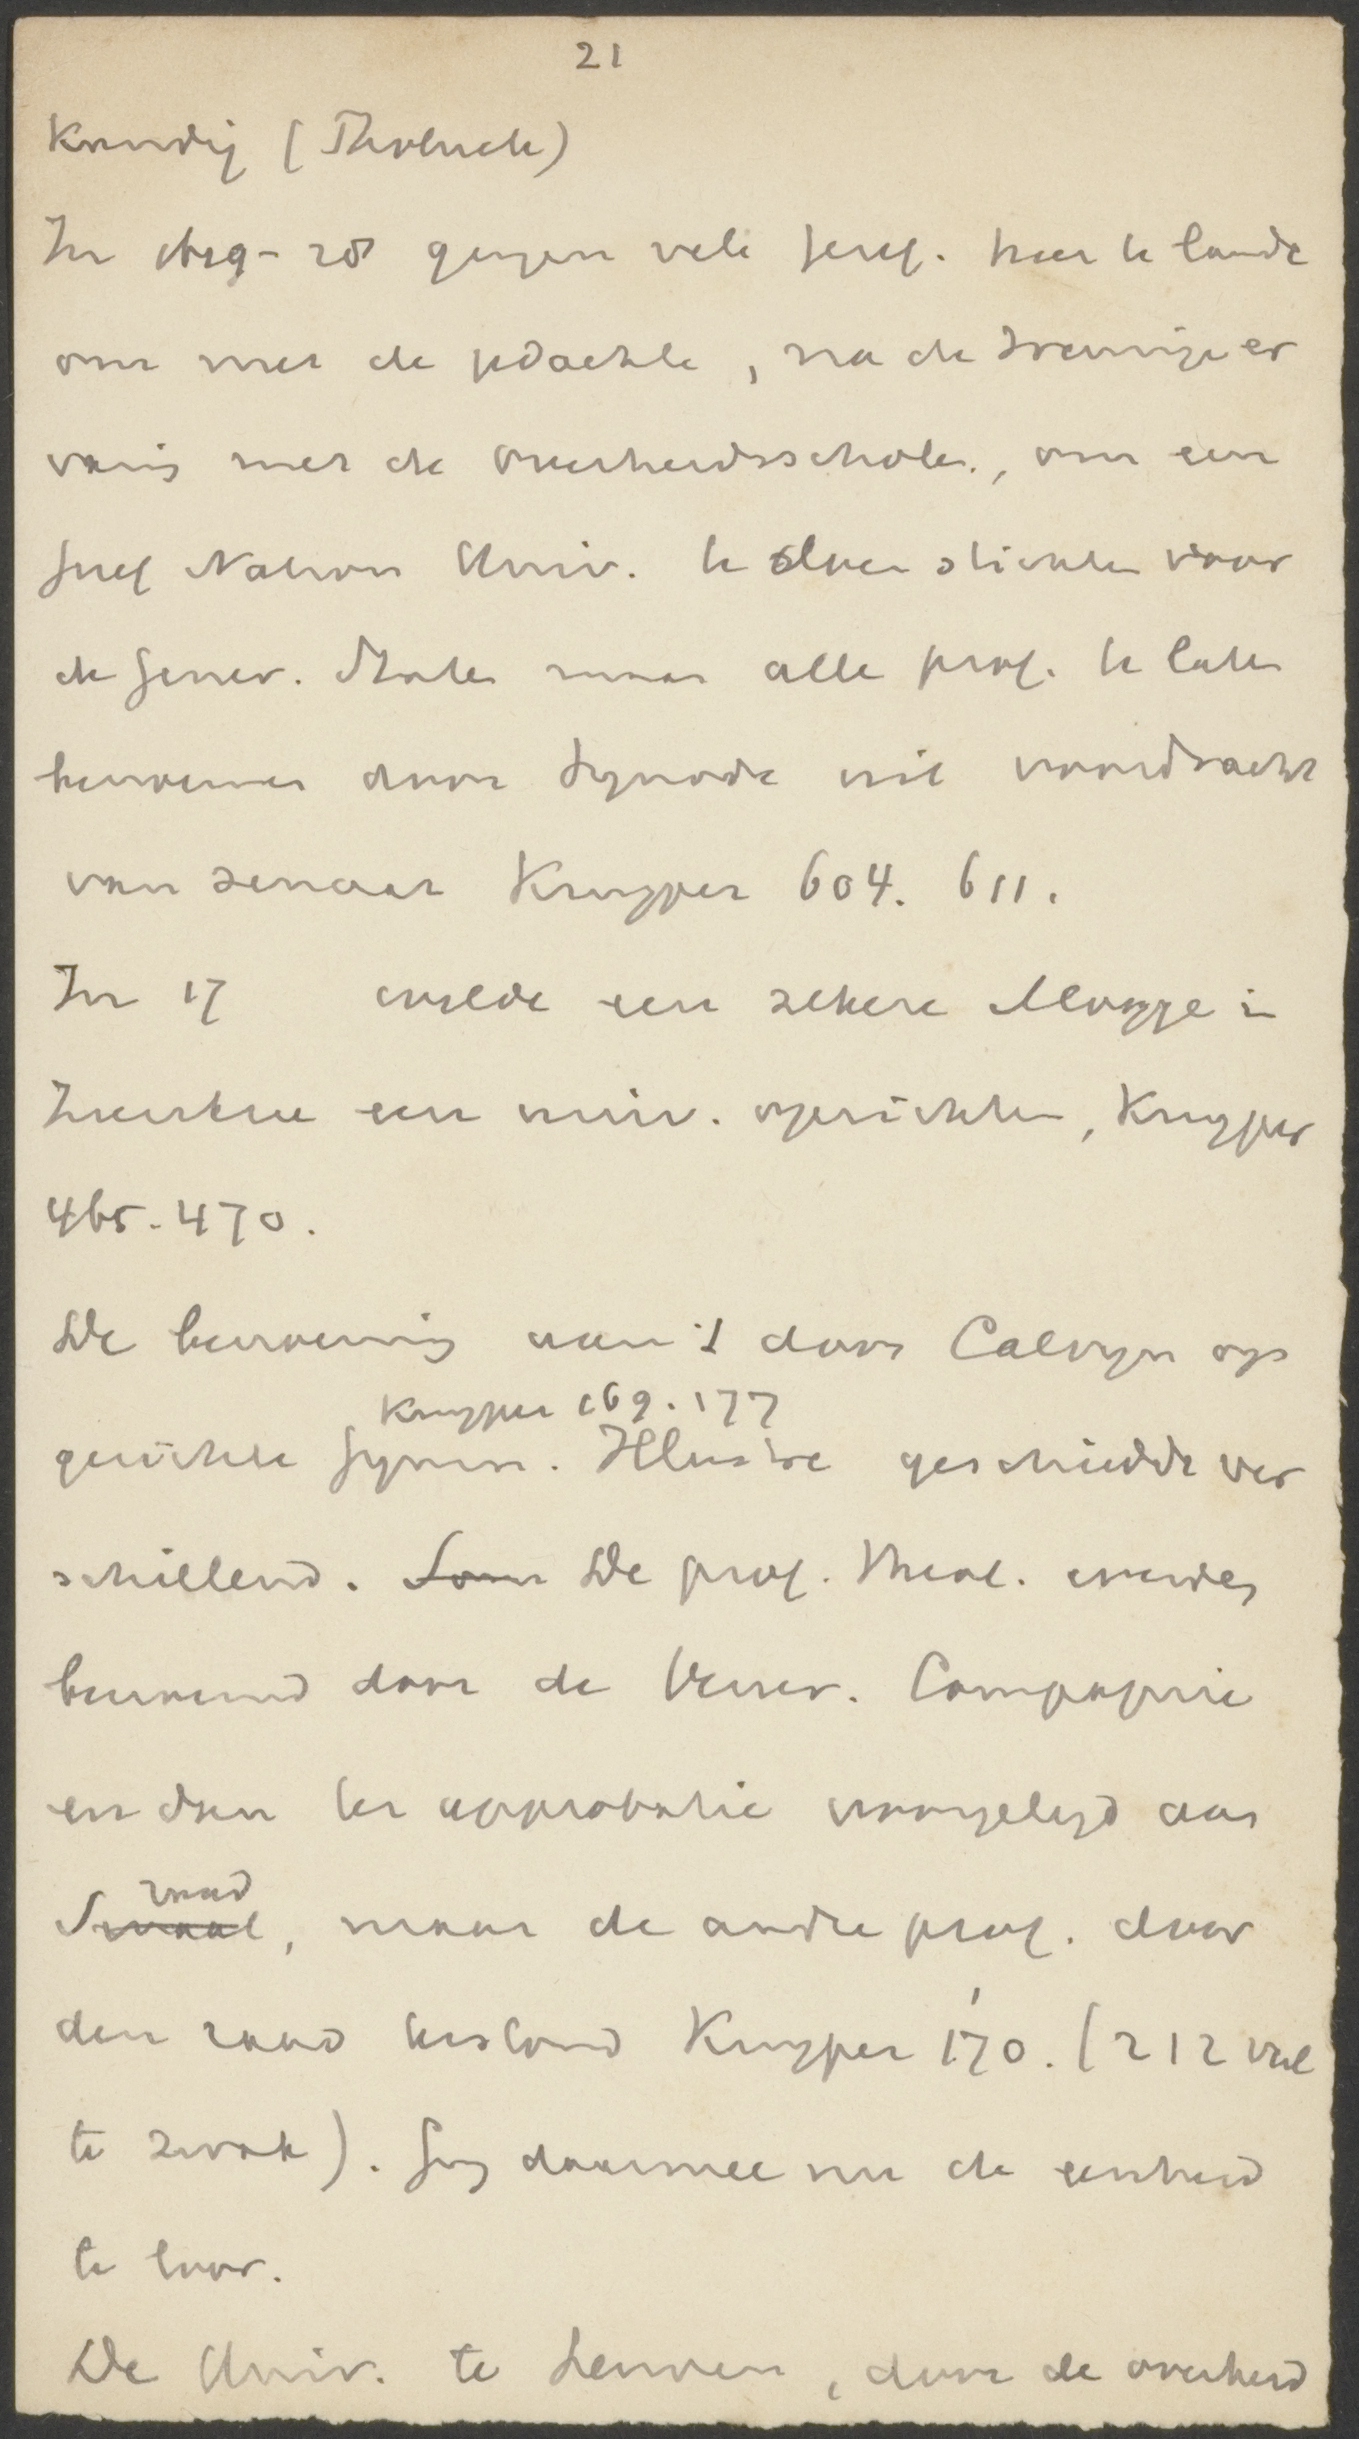 21
kundig (Tholuck)
In 1619-28 gingen vele Geref. hier te lande
om met de gedachte, na de treurige er
varing met de overheidsscholen, om een
Geref Nation Univ. te doen stichten voor
de Gener. Staten maar alle prof. te laten
benoemen door Synode uit voordracht
van senaat Kuyper 604. 611.
In 17 wilde een zekere Moggge in
Zierikzee een univ. oprichten, Kuyper
465-470.
De benoeming aan 't door Calvijn op
Kuyper 169. 177
gerichte Gymn. Illustre geschiedde ver
schillend. De prof. theol. werden
benoemd door de Vener. Compagnie
en dan ter approbatie voorgelegd aan
raad
Senaat, maar de andre prof. door
den raad bestond Kuyper 170. (212 veel
te zwak). Ging daarmee nu de eenheid
te loor.
De Univ. te Leuven, door de overheid